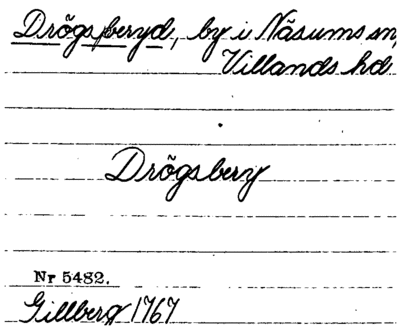 Drögsperyd, by i Näsums sn,
Villands hd
Drögsbery
Nr 5482.
Gillberg 1767